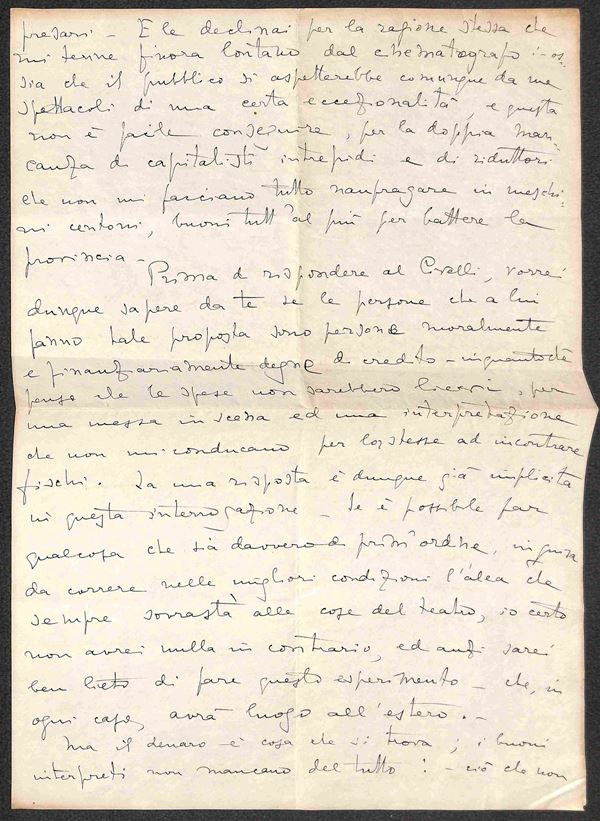 presari - E le declinai per la ragione stessa che
mi tenne finora lontano dal cinematografo: os-
sia che il pubblico si aspetterebbe comunque da me
spettacoli di una certa eccezionalità, e questa
non è facile conseguire, per la doppia man-
canza di capitalisti intrepidi e di riduttori
che non mi facciano tutto naufragare in meschi-
ni centoni, buoni tutt'al più per battere la
provincia -
Prima di rispondere al Civelli, vorrei
dunque sapere da te se le persone che a lui
fanno tale proposta sono persone moralmente
e finanziariamente degne di credito - inquantoché
penso che le spese non sarebbero lievi, per
una messa in scena ed una interpretazione
che non mi conducano per lo stesse ad incontrare
fischi. La mia risposta è dunque già implicita
in questa interrogazione - Se è possibile far
qualcosa che sia davvero di prim'ordine, in guisa
da correre nelle migliori condizioni l'alea che
sempre sovrasta alle cose del teatro, io certo
non avrei nulla in contrario, ed anzi sarei
ben lieto di fare questo esperimento - che, in
ogni caso, avrà luogo all'estero. -
Ma il denaro è cosa che si trova; i buoni
interpreti non mancano del tutto: - ciò che non